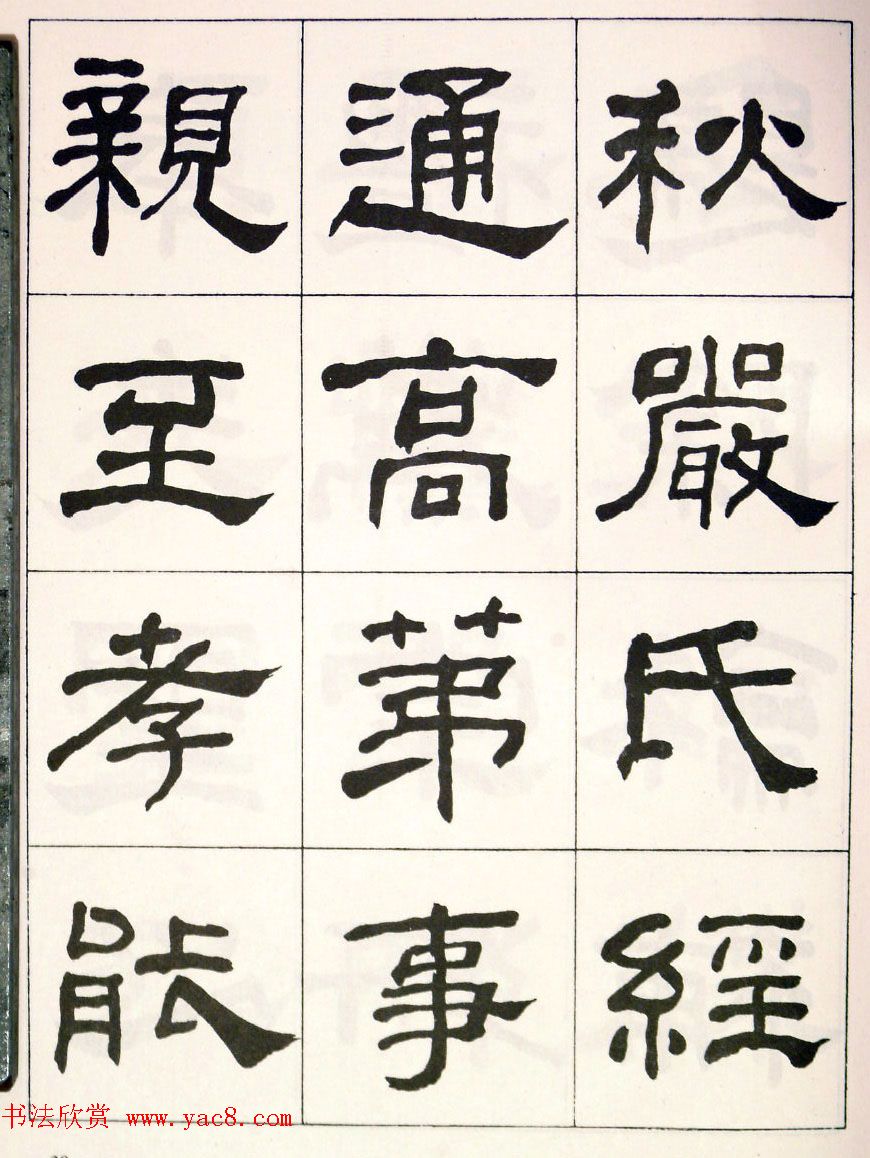 秋嚴氏經
通高苐事
親至孝能
书法欣赏 www.yac8.com